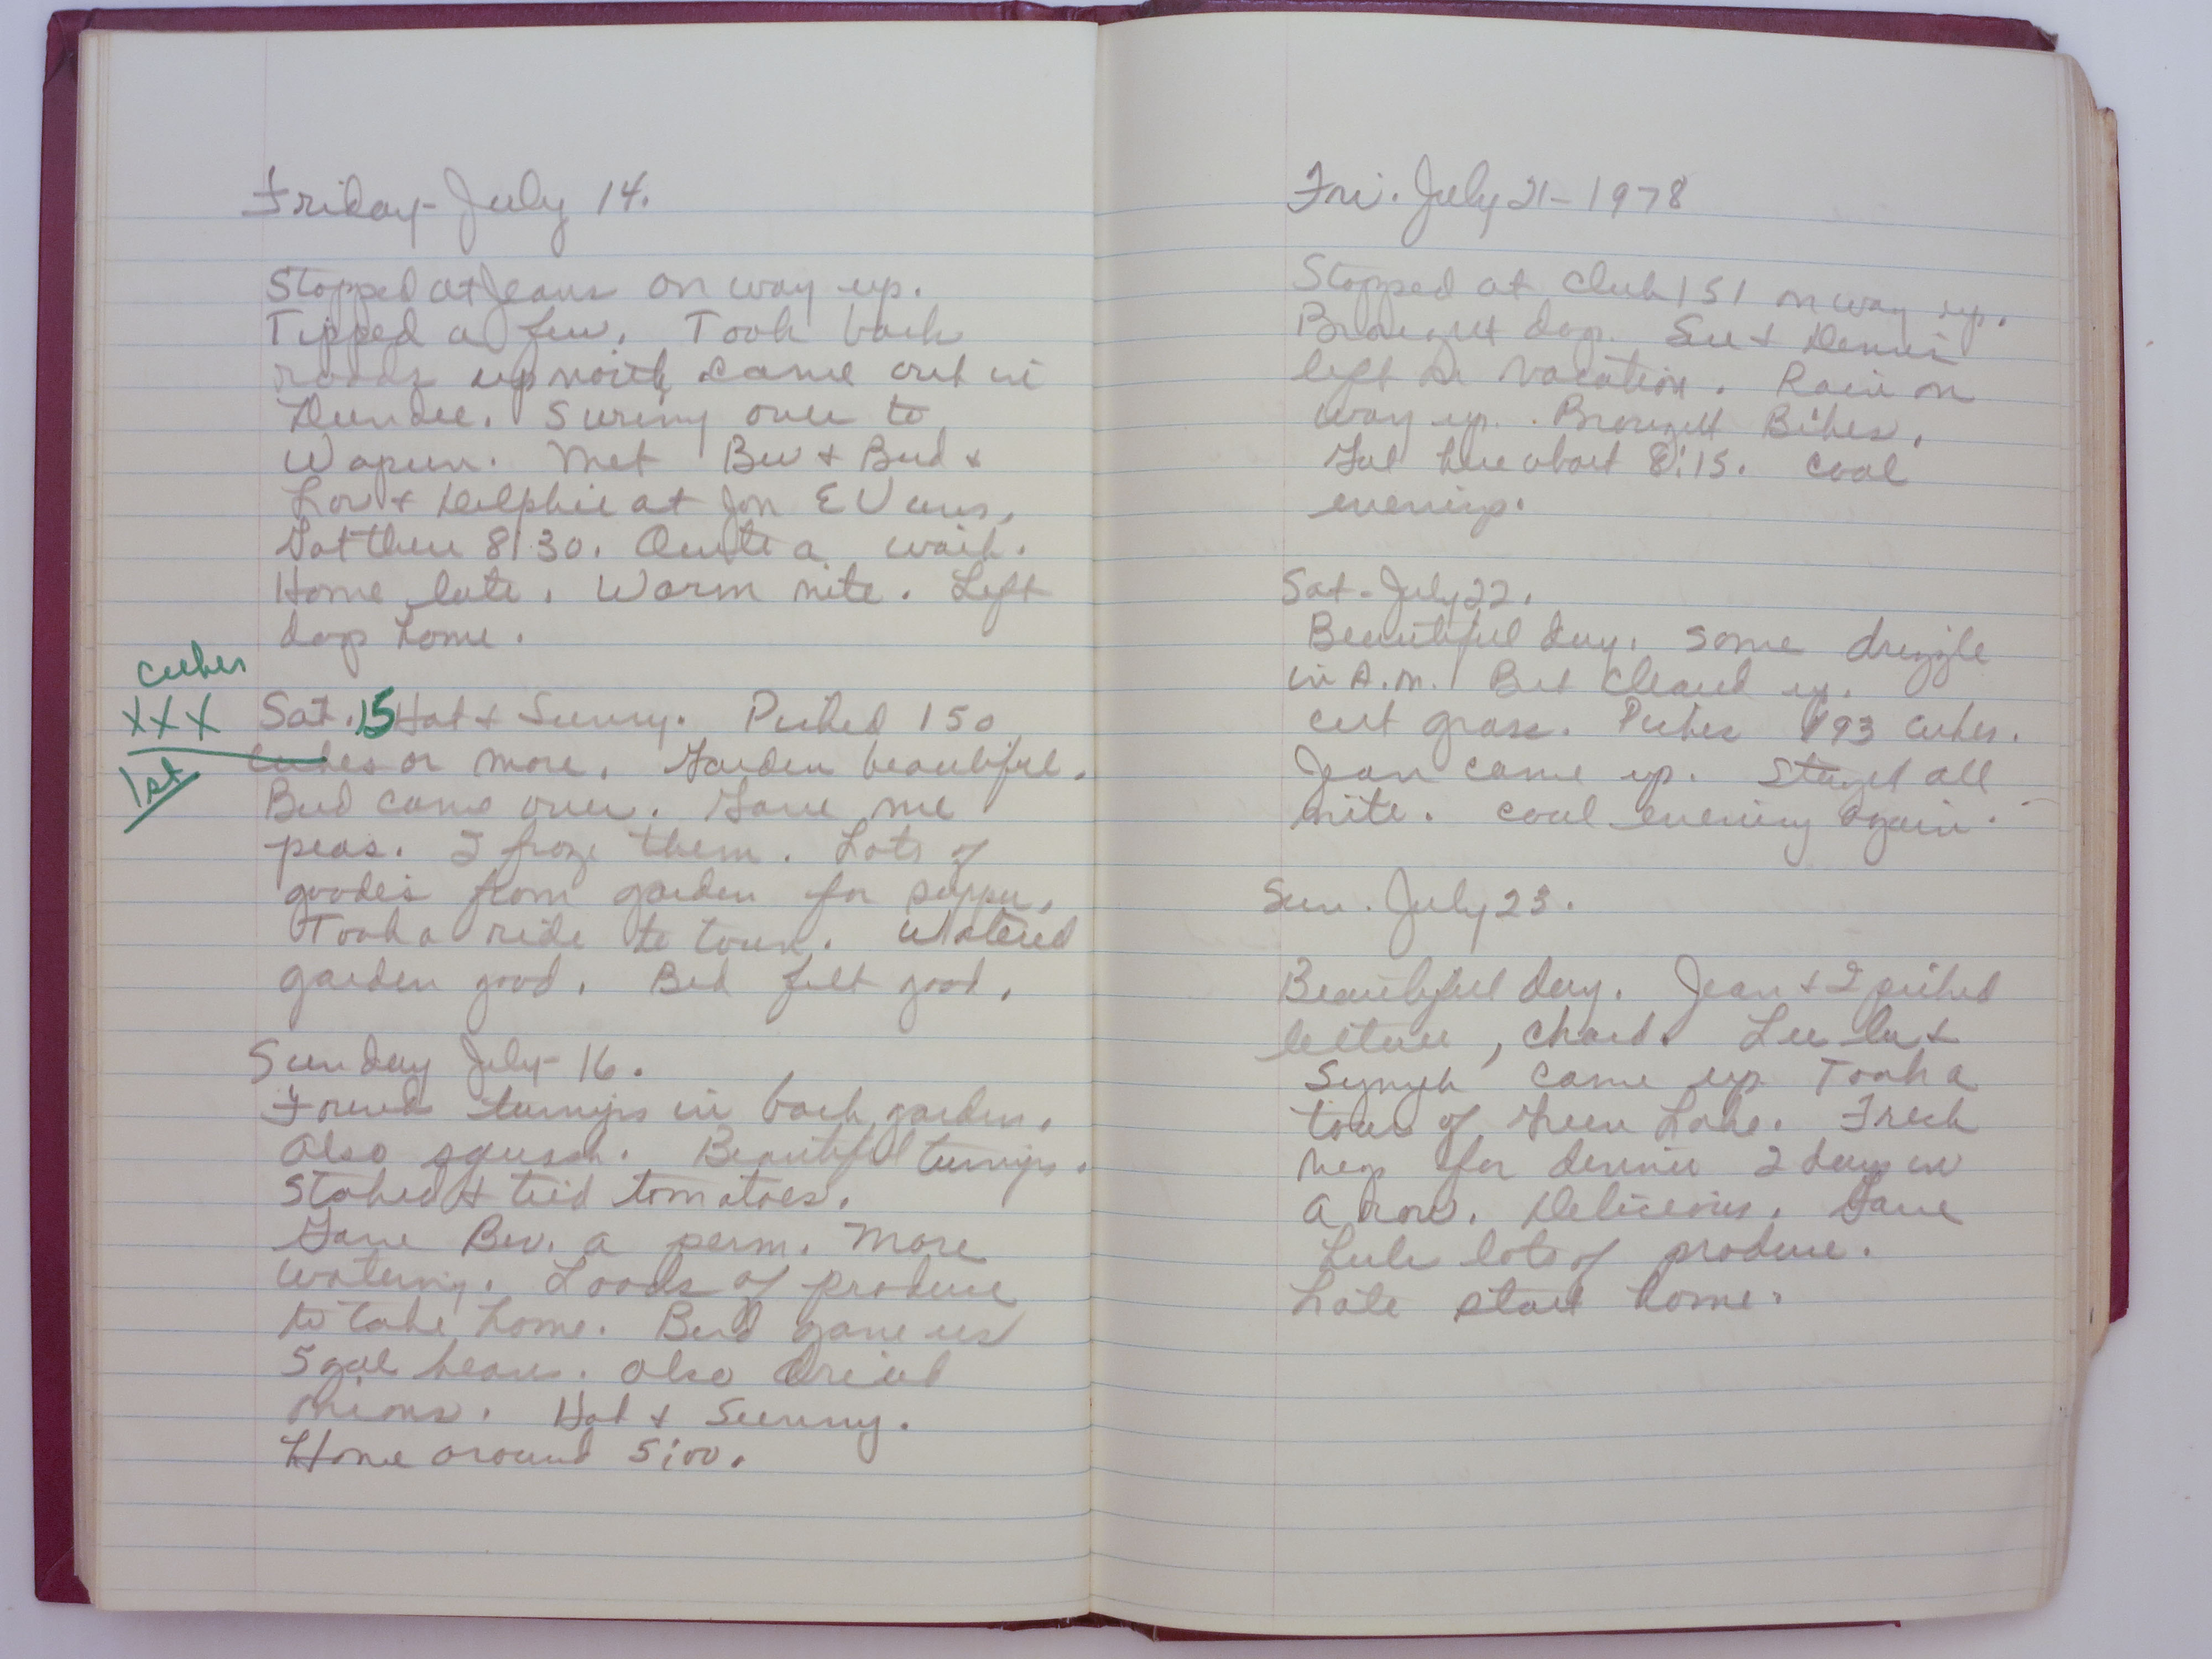 Friday - July 14.
Stopped at Jeans on way up.
Tipped a few. Took back
roads up north came out in
Dundee. Swung over to
Waupun. Met Bev & Bud &
Lov & Delphie at Jon Evans.
Got there 8:30. Quite a wait.
Home late. Warm nite. Left
dogs home.
cukes
XXX
1st
Sat. 15 Hot & Sunny. Picked 150
cukes or more. Garden beautiful.
Bud came over. Gave me
peas. I froze them. Lots of
goodes from garden for supper.
Took a ride to town. Watered
garden good. Bed felt good.
Sunday July - 16.
Found turnips in back garden.
Also squash. Beautiful turnips.
Staked & tied tomatoes.
Gave Bev. a perm. More
watering. Loads of produce
to take home. Bud gave us
5 gal beans. Also dried
onions. Hot & Sunny.
Home around 5:00.
Fri. July 21 - 1978
Stopped at Club 151 on way up.
Brought dogs. Sue & Dennis
left on vacation. Rain on
way up. Brought Bikes.
Got here about 8:15. Cool
evening.
Sat - July 22.
Beautiful day. Some drizzle
in A.M. But cleared up.
Cut grass. Picked 193 cukes.
Jean came up. Stayed all
nite. Cool evening again.
Sun. July 23.
Beautiful day. Jean & I picked
lettuce, chard. Lee Lu &
came up. Took a
tour of Green Lake. Fresh
vegs for dinner 2 days in
a row. Delicious. Gave
Lulu lots of produce.
Late start home.